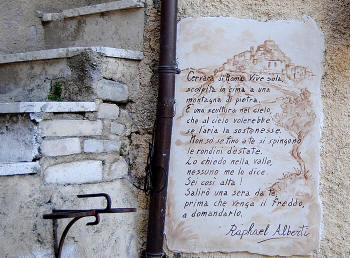 Cervara si chiama. Vive sola,
scolpita in cima a una
montagna di pietra.
È una scultura nel cielo,
che al cielo volerebbe
se l'aria la sostenesse.
Non so se fino a te si spingono
le rondini d'estate.
Lo chiedo nella valle,
nessuno me lo dice.
Sei così alta!
Salirò una sera da te
prima che venga il freddo,
a domandarlo.
Raphael Alberti